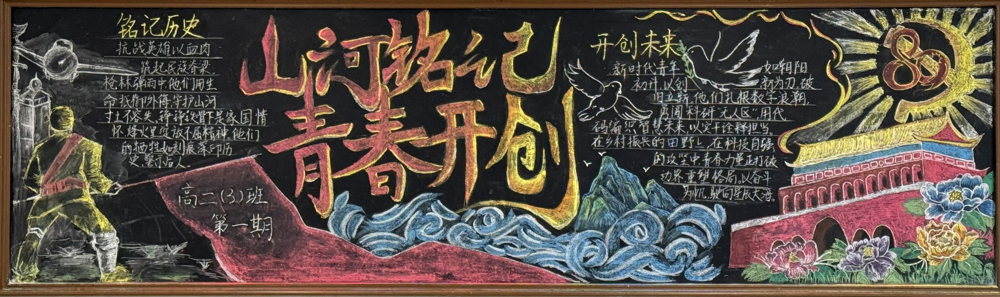 铭记历史
抗战英雄以血肉
筑起民族脊梁
枪林弹雨中他们用生
命抵御外辱守护山河
寸土不容失，铮铮铁骨尽显家国情
怀烽火更绽放不屈精神，他们
的牺牲如刻痕深印历
史，警示后人
山河铭记
青春开创
高二(3)班
第一期
开创未来
新时代青年如朝阳
初升，以创新为刃，破
旧立新，他们扎根数字浪潮
勇闯科研"无人区"用代
码编织智慧未来，以实干诠释担当
在乡村振兴的田野上，在科技自强
的攻坚中青春力量正打破
边界，重塑格局，以奋斗
为帆，驶向星辰大海
80